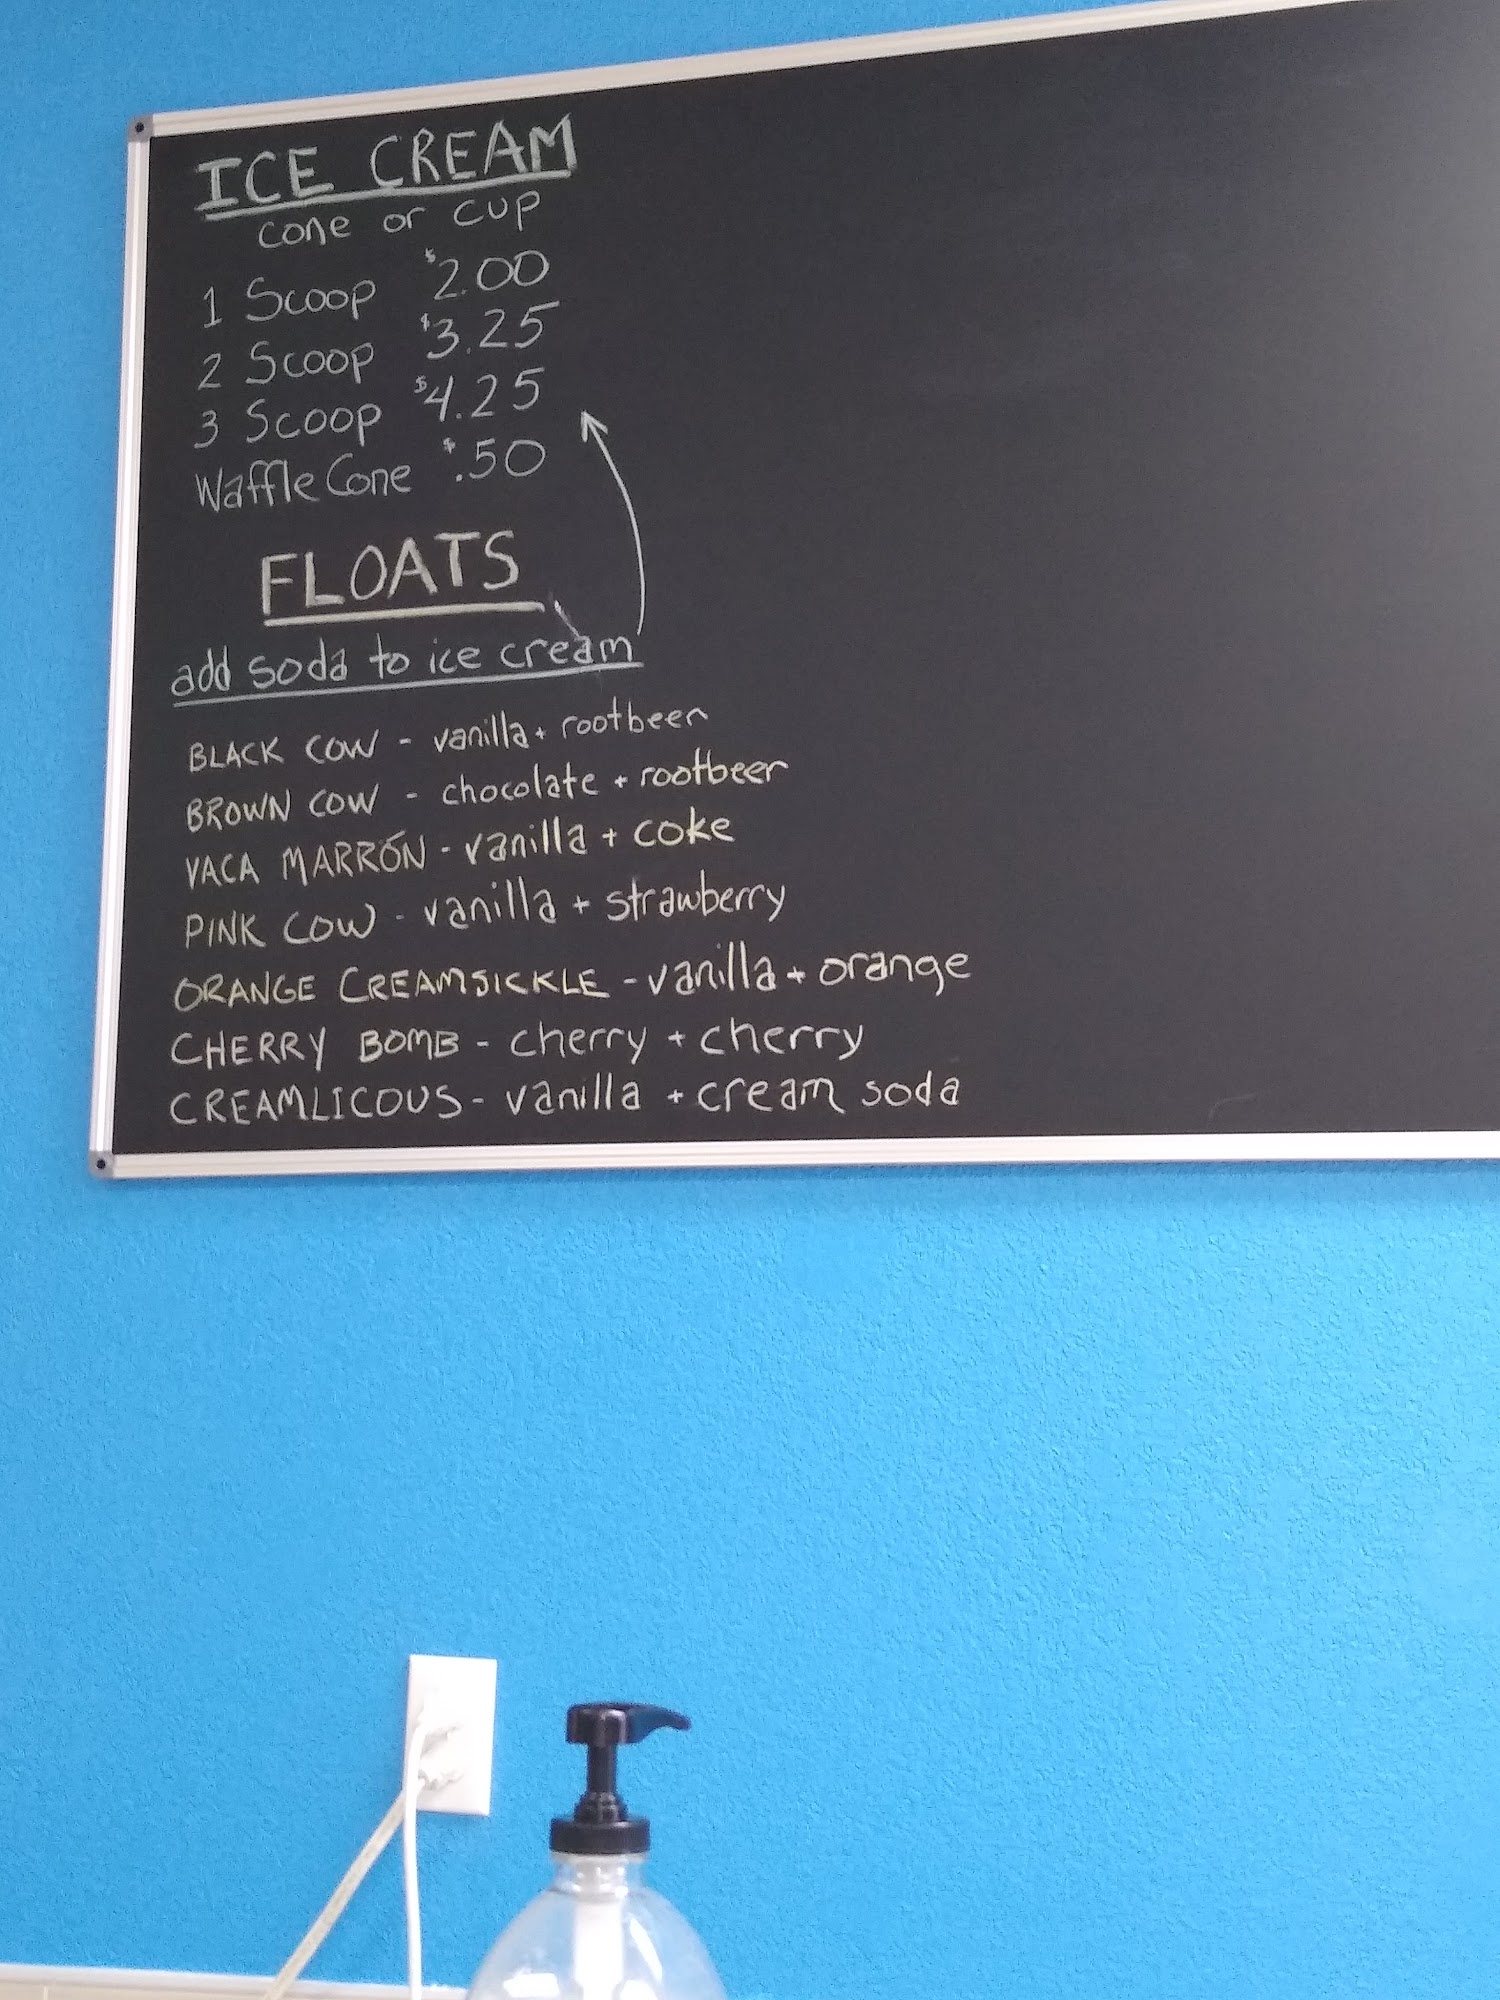 ICE CREAM
cone or cup
1 Scoop $2.00
2 Scoop $3.25
3 Scoop $4.25
Waffle Cone $.50
FLOATS
add soda to ice cream
BLACK COW - vanilla + rootbeer
BROWN COW - chocolate + rootbeer
VACA MARRÓN - vanilla + coke
PINK COW - vanilla + strawberry
ORANGE CREAMSICKLE - vanilla + orange
CHERRY BOMB - cherry + cherry
CREAMLICOUS - vanilla + cream soda